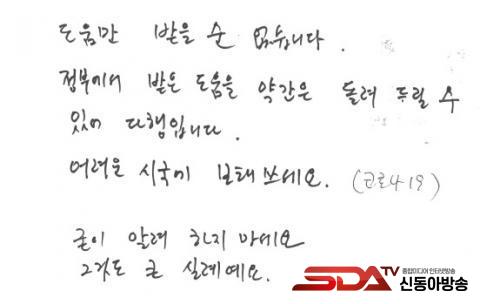 도움만 받을 순 없습니다.
정부에서 받은 도움을 약간은 돌려 드릴 수
있어 다행입니다.
어려운 시국에 보태 쓰세요. (코로나19)
굳이 알려 하지 마세요
그것도 큰 실례예요.
SDATV 종합미디어 인터넷방송
신동아방송